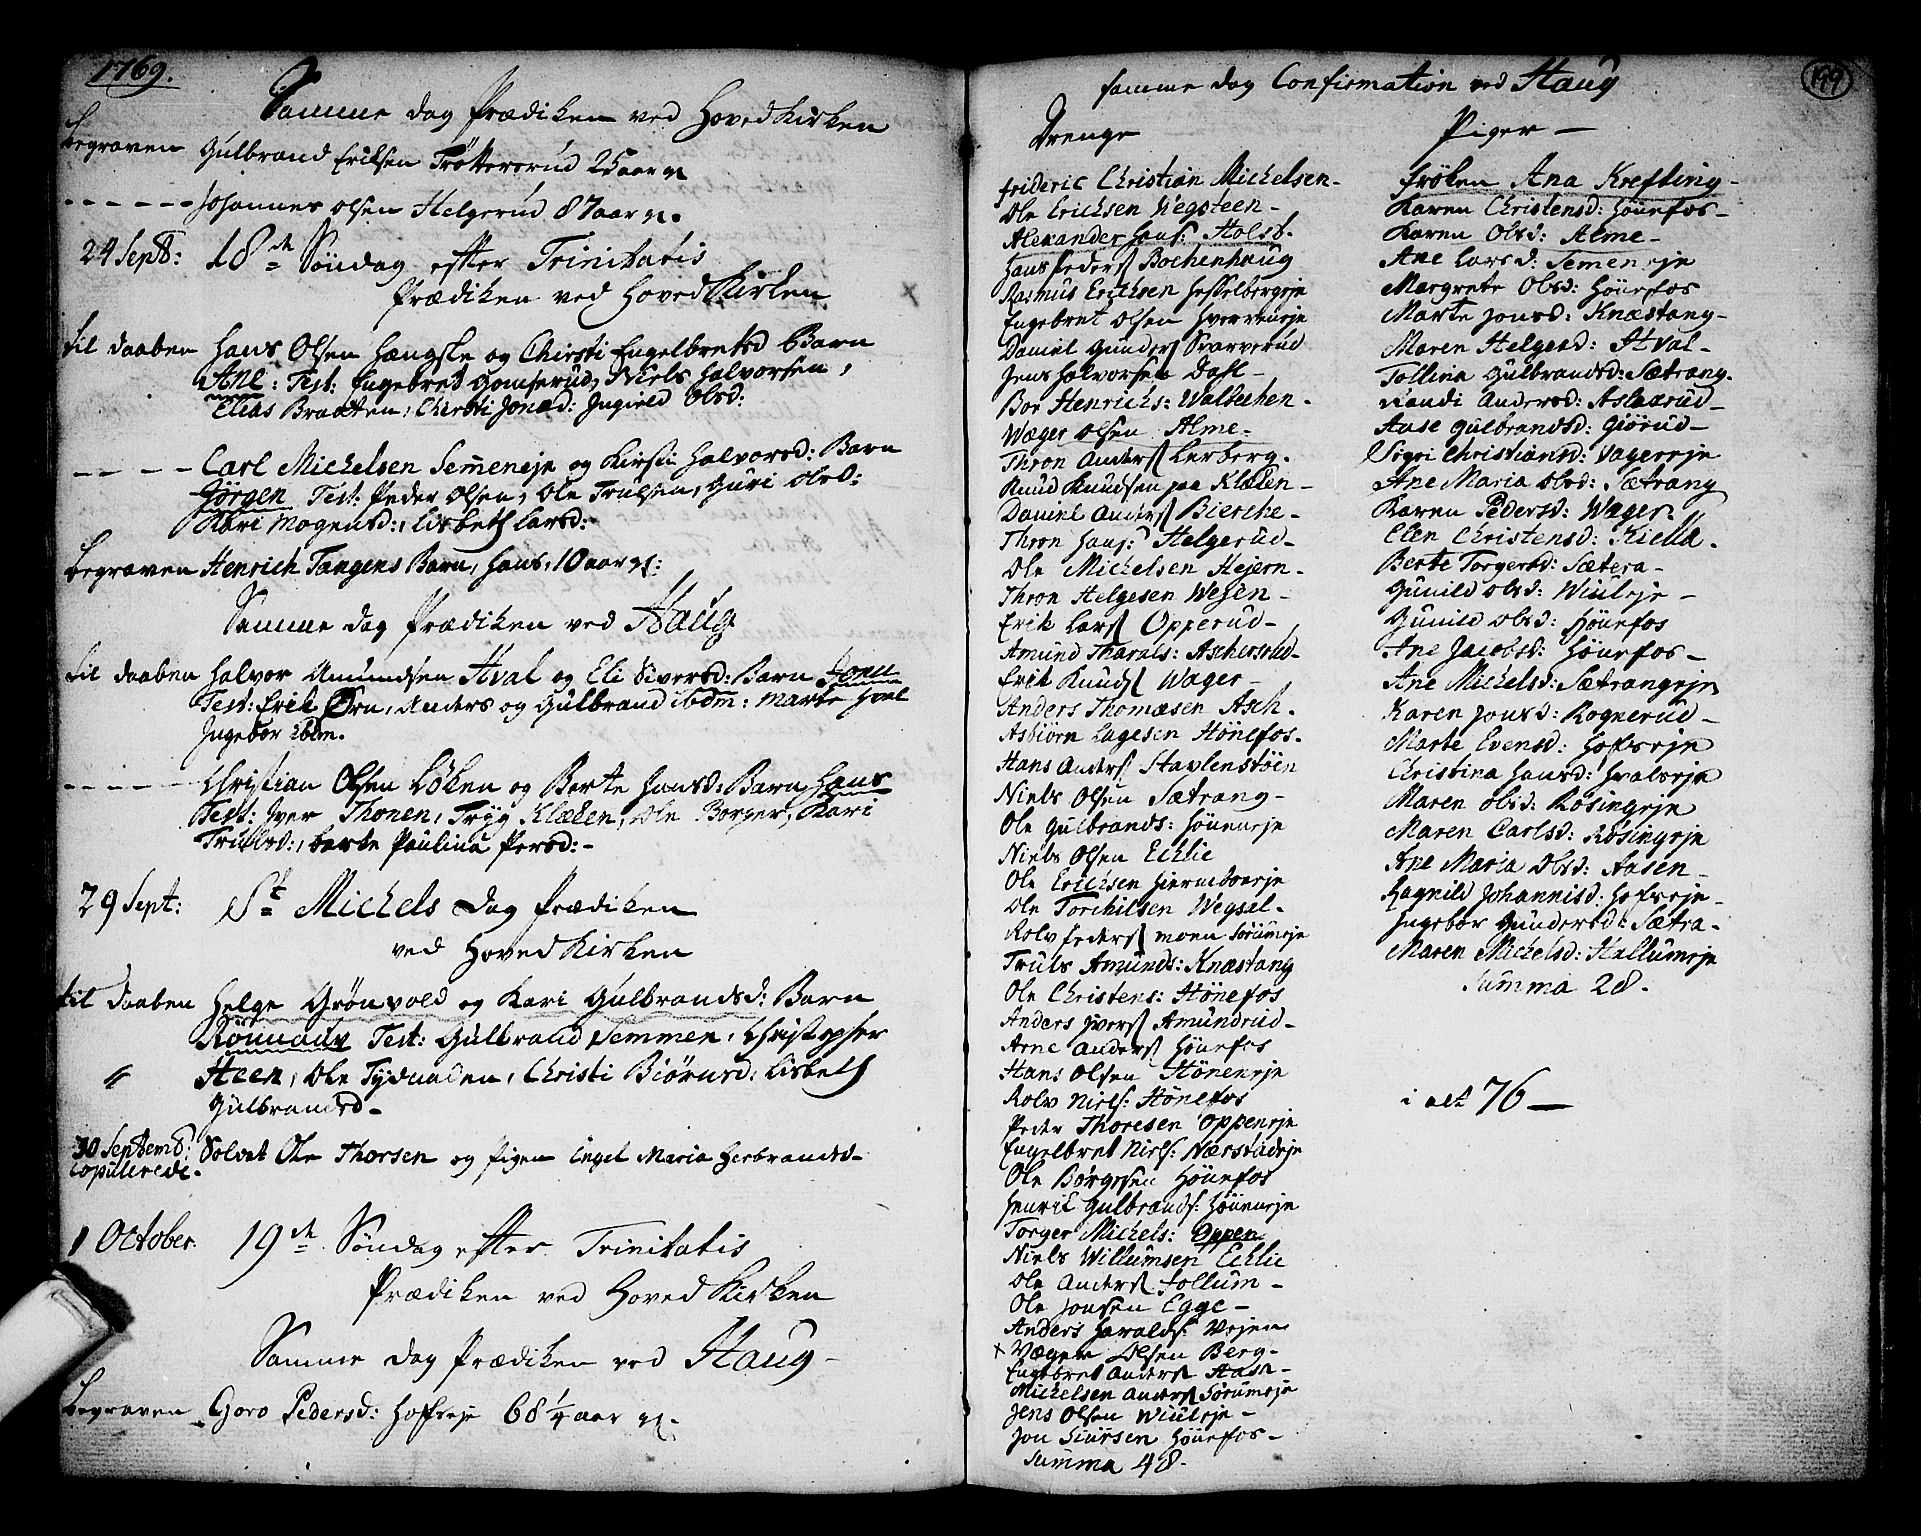 1769.
Samme dag Prædiken ved Hoved Kirken
begraven Gulbrand Erichsen Tröttersrud 25 aar gl.
- - - - - - Johannes Olsen Helgerud 87 aar gl.
24 Septb: 18de Söndag efter Trinitatis
Prædiken ved Hoved Kirken
til daaben Hans Olsen Hængsle og Christi Engelbretsd Barn
Ane: Test: Engebret Gomserud, Niels Halvorsen,
Elias Braatten, Christi Jonæd: Ingield Olsd:
- - - - - Carl Michelsen Semeneje og Kirsti Halvorsd: Barn
Jörgen Test: Peder Olsen, Ole Trulsen, Guri Olsd:
Kari Mogensd:, Lisbeth Larsd:
begraven Henrich Tangens Barn, Hans, 10 aar gl:
Samme dag Prædiken ved Haug
til daaben Halvor Amundsen Hval og Eli Siversd: Barn Jonn
Test: Erik Ørn, Anders og Gulbrand ibdm: Marte Hval
Ingebor ibdm.
- - - - - Christian Olsen Löken og Berte Hansd: Barn Hans
Test: Iver Thonen, Tryg Klækken, Ole Borger, Kari
Trulsd:, berte Paulina Persd:-
29 Sept: St Michels dag Prædiken
ved Hoved Kirken
til daaben Helge Grönvold og Kari Gulbrandsd: Barn
Rönnaug Test: Gulbrand Semmen, Christopher
Heen, Ole Tydualen, Christi Biörnsd: Lisbeth
Gulbrandsd-
30 Septemb: Solvet Ole Thorsen og Pigen Ingel Maria Herbrandsd-
Copulerede.
1 October. 19de Söndag efter Trinitatis
Prædiken ved Hoved Kirken
Samme dag Prædiken ved Haug-
begraven Goro Pedersd: Hofseje 68 1/4 aar gl.
199
samme dag Confirmation ved Haug
Drenge
frideric Christian Michelsen-
Ole Erichsen Vegsteen-
Alexander Hans: Holst.
Hans Peders Bochenhaug
Rasmus Erichsen Hesselbergeje
Engebret Olsen Hverveneje
Daniel Gunders Svarverud
Jens Halvorsen Dahl-
Bor Henrichs: Walbechen-
Wæger Olsen Alme-
Thron Anders Lerberg.
Knud Knudsen paa Klækken-
Daniel Anders Bierche-
Thron Hans: Helgerud-
Ole Michelsen Hejern-
Thron Helgesen Wesen-
Erik Lars Opperud-
Amund Tharals: Aschersrud-
Erik Knuds Wager-
Anders Thomæsen Asch.
Asbiörn Lagesen Hönefos.
Hans Anders Stavlenstöen
Niels Olsen Sætrang-
Ole Gulbrands: Höneneje
Niels Olsen Ecklie
Ole Erichsen
Ole Torchilsen Wegsal-
Rolv Peders moen Sörumeje
Truls Amunds: Knæstang
Ole Christens: Hönefos
Anders Ivers Amundrud-
Arne Anders Hönefos
Hans Olsen Höneneje
Rolv Niels: Hönefos
Peder Thoresen Oppeneje
Engelbret Niels: Nærstadeje
Ole Börgesen Hönefos
Henrik Gulbrands: Höneneje
Torger Michels: Oppen
Niels Willumsen Ecklie
Ole Anders Follum-
Ole Jonsen Egge-
Anders Haralds: Vejen
x Væger Olsen Berg-
Engebret Anders Haen-
Michelsen Anders Sörumeje
Jens Olsen Wiuleje-
Jon Siursen Hönefos-
Summa 48-
Piger-
fröken Ana Krefting-
Karen Christensd: Hönefos-
Karen Olsd: Alme-
Ane Larsd: Semeneje
Margrete Olsd: Hönefos
Marte Jonsd: Knæstang-
Maren Helgesd: Hval-
Tollina Gulbrandsd: Sætrang.
Randi Andersd: Aslaxrud-
Aase Gulbrandsd: Giörud-
Sigri Christiansd: Vagereje
Ane Maria Olsd: Sætrang
Karen Pedersd: Wager.
Elen Christensd: Kiella.
Berte Torgersd: Sætera-
Gunild Olsd: Wiuleje-
Gunild Olsd: Hönefos
Ane Jacobsd: Hönefos-
Ane Michelsd: Sætrangeje
Karen Jonsd: Rognerud-
Marte Evensd: Hofseje
Christina Hansd: Hvaleeje
Maren Olsd: Rosingeje
Maren Carlsd: Rosingeje
Ane Maria Olsd: Aasen-
Ragnild Johannisd: Hofseje-
Ingebor Gundersd: Sætra-
Maren Michelsd: Hallumeje
Summa 28.
i alt 76-